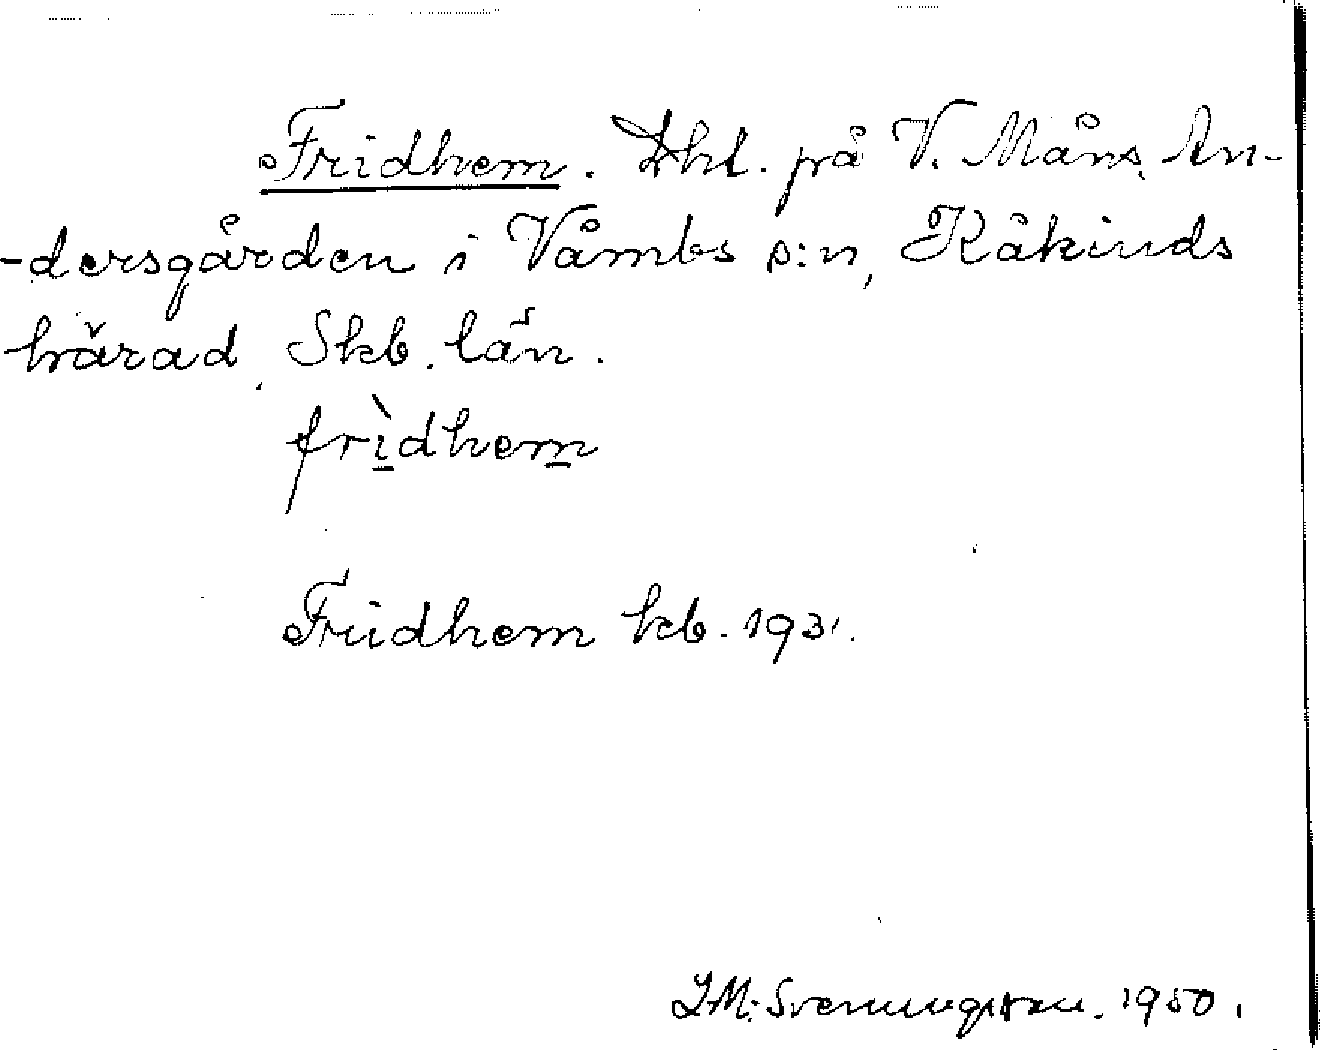 Fridhem. Lht. på V. Måns An-
-dersgården i Våmbs s:n, Kåkinds
härad, Skb. län.
frìdhem
Fridhem kb. 1931.
Svenungsson. 1950.